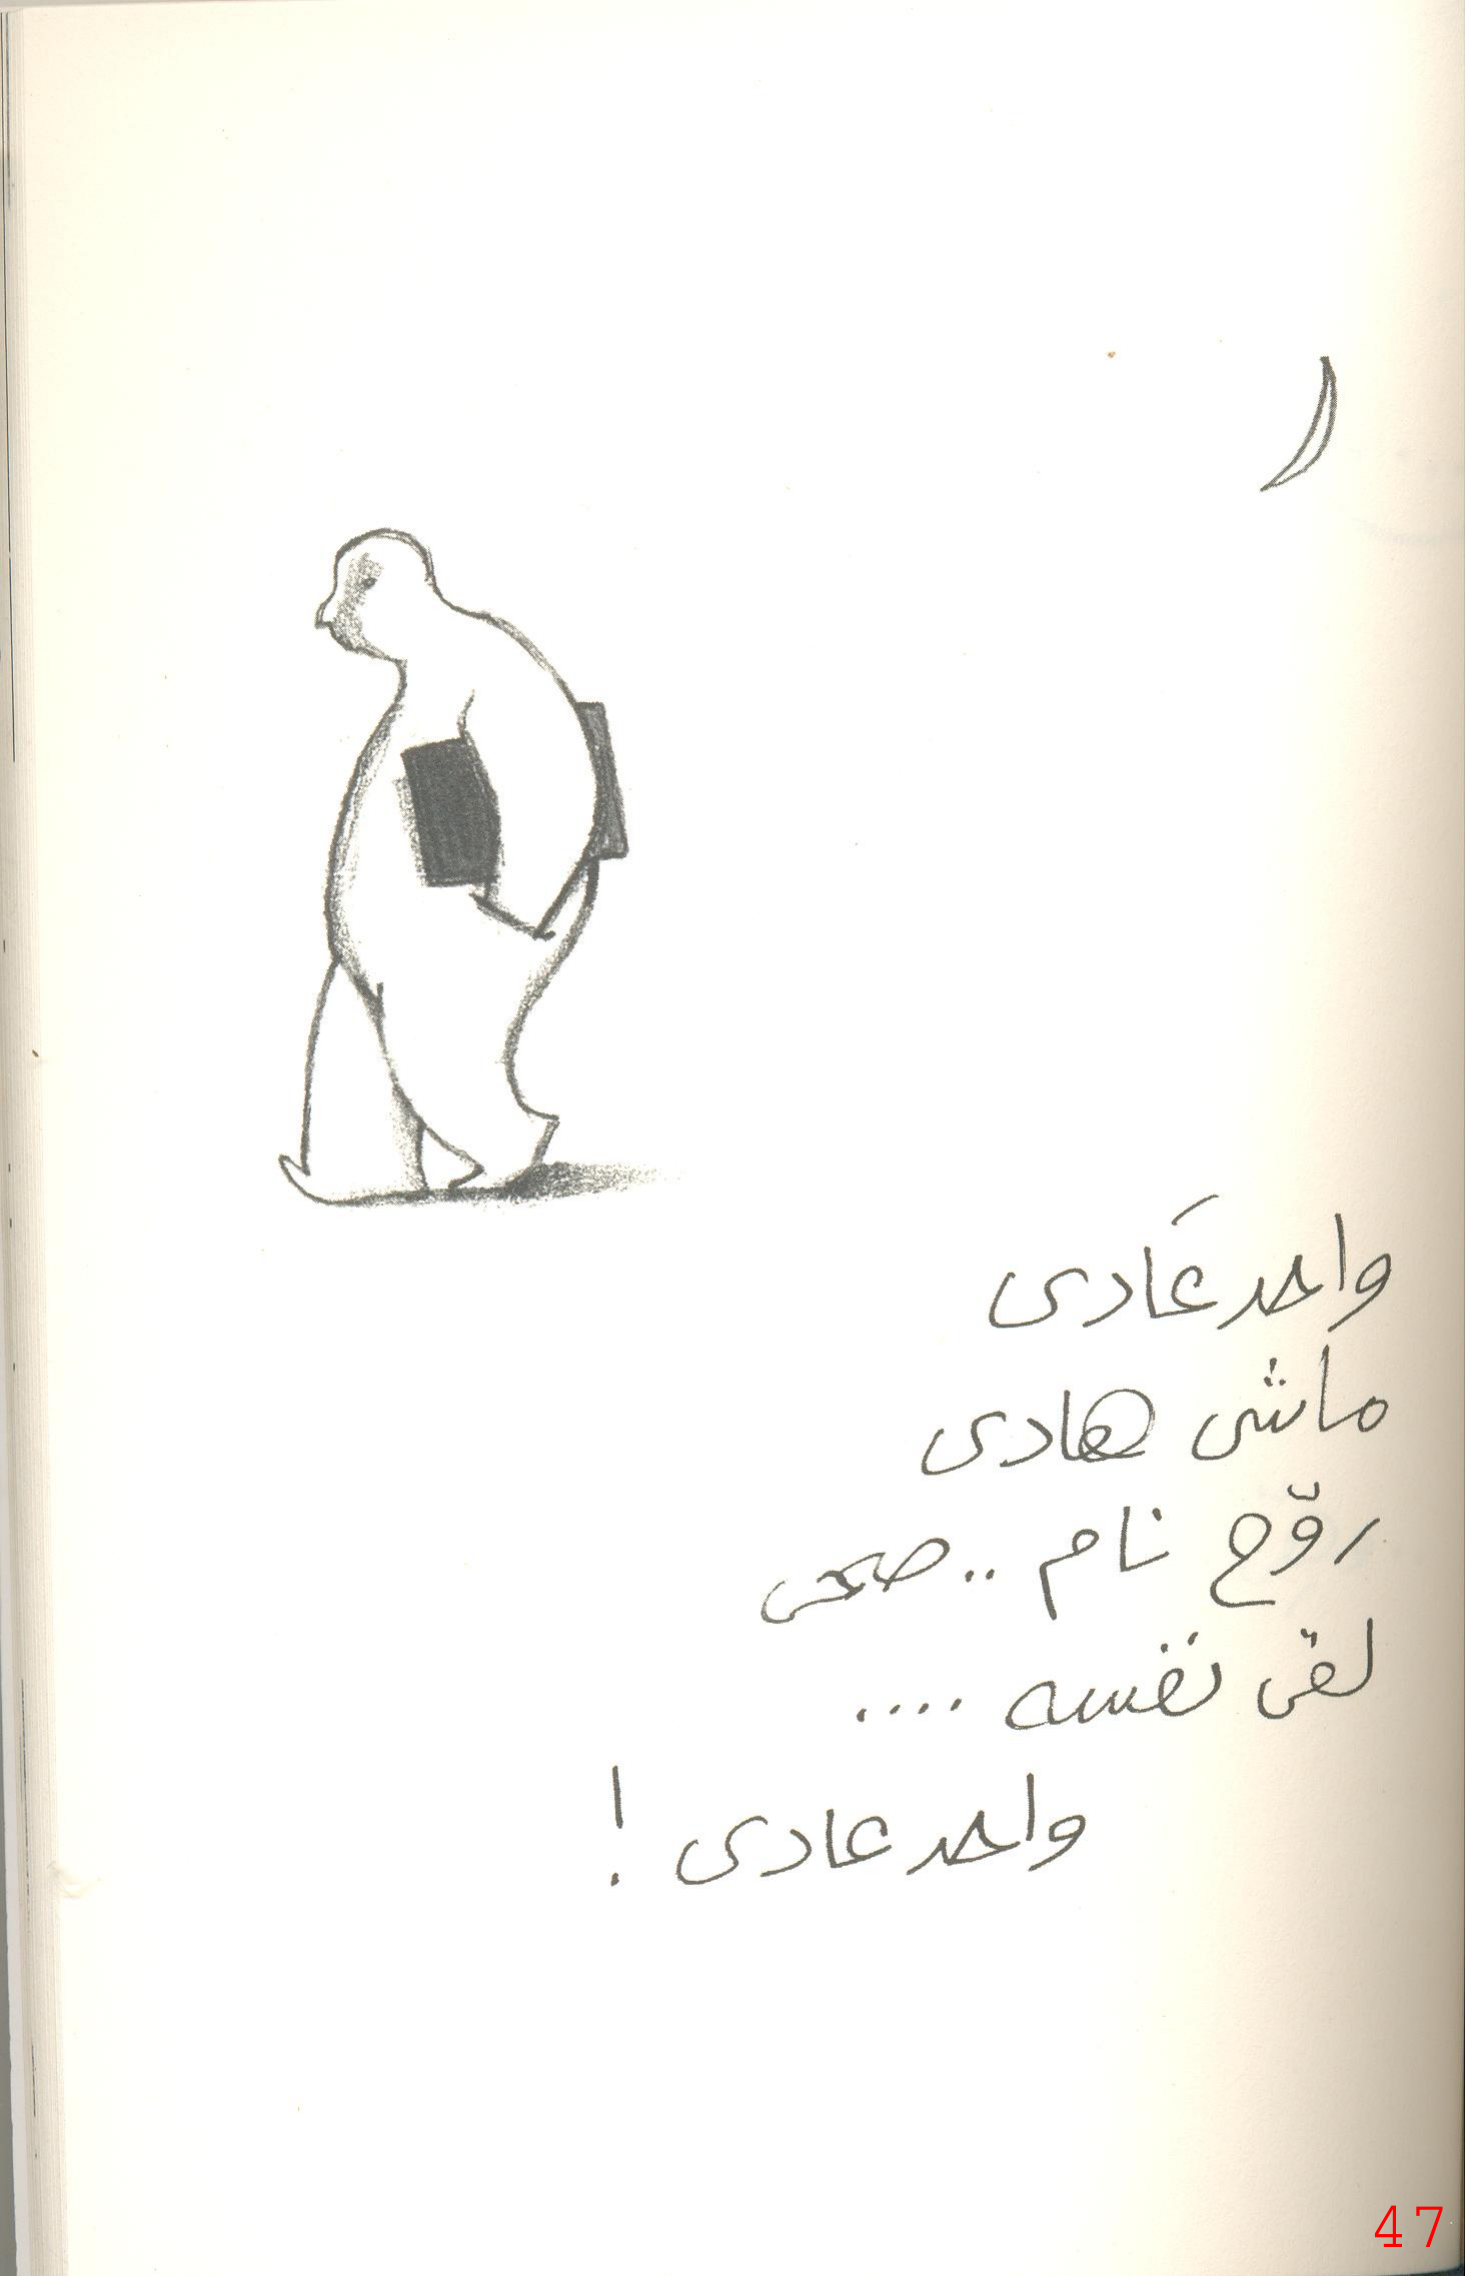 واحد عَادى
ماشى هادى
روّح نام .. صحى
لقى نفسه ....
واحد عادى !
47